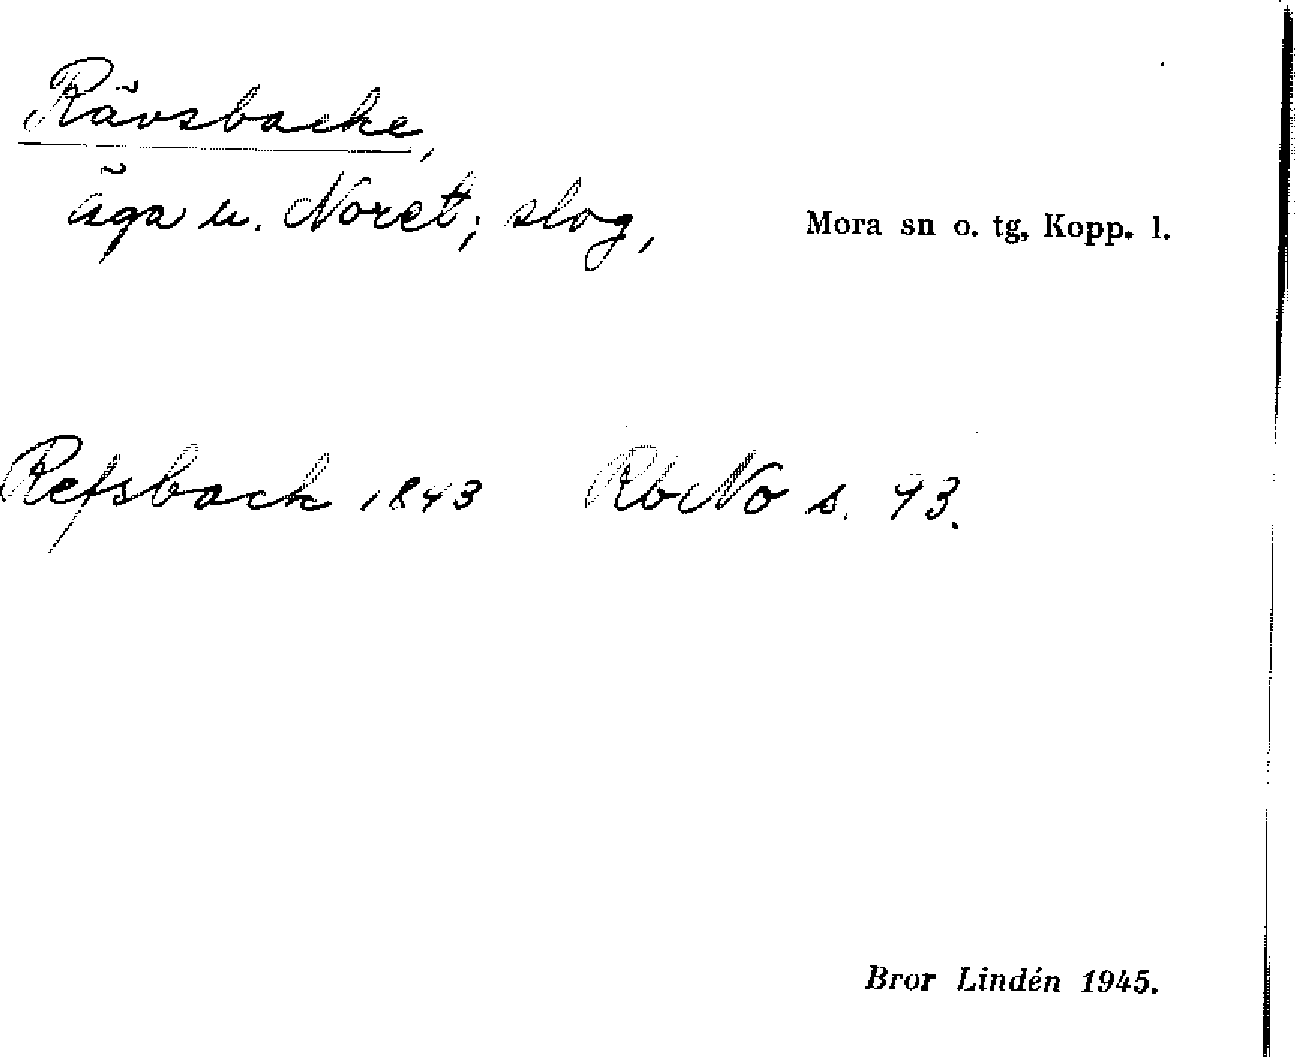 Rävsbacke,
äga u. Noret; slog,
Mora sn o. tg, Kopp. l.
Refsback 1843 RbNo s. 43.
Bror Lindén 1945.